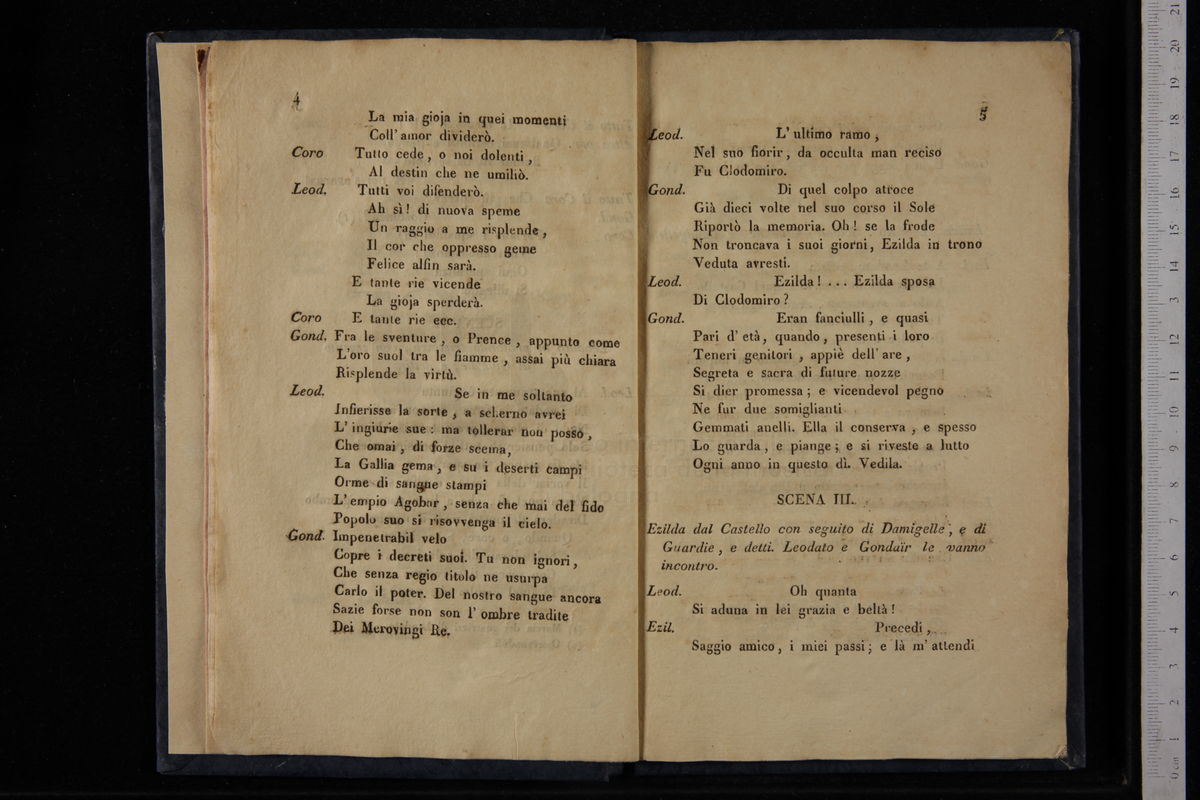 4
La mia gioja in quei momenti
Coll' amor dividerò.
Coro Tutto cede, o noi dolenti,
Al destin che ne umiliò.
Leod. Tutti voi difenderò.
Ah sì! di nuova speme
Un raggio a me risplende,
Il cor che oppresso geme
Felice alfin sarà.
E tante rie vicende
La gioja sperderà.
Coro E tante rie ecc.
Gond. Fra le sventure, o Prence, appunto come
L'oro suol tra le fiamme, assai più chiara
Risplende la virtù.
Leod. Se in me soltanto
Infierisse la sorte, a scherno avrei
L' ingiurie sue: ma tollerar non posso,
Che omai, di forze scema,
La Gallia gema, e su i deserti campi
Orme di sangue stampi
L' empio Agobar, senza che mai del fido
Popolo suo si risovvenga il cielo.
Gond. Impenetrabil velo
Copre i decreti suoi. Tu non ignori,
Che senza regio titolo ne usurpa
Carlo il poter. Del nostro sangue ancora
Sazie forse non son l' ombre tradite
Dei Merovingi Re.
5
Leod. L' ultimo ramo,
Nel suo fiorir, da occulta man reciso
Fu Clodomiro.
Gond. Di quel colpo atroce
Già dieci volte nel suo corso il Sole
Riportò la memoria. Oh! se la frode
Non troncava i suoi giorni, Ezilda in trono
Veduta avresti.
Leod. Ezilda! ... Ezilda sposa
Di Clodomiro?
Gond. Eran fanciulli, e quasi
Pari d' età, quando, presenti i loro
Teneri genitori, appiè dell' are,
Segreta e sacra di future nozze
Si dier promessa; e vicendevol pegno
Ne fur due somiglianti
Gemmati anelli. Ella il conserva, e spesso
Lo guarda, e piange; e si riveste a lutto
Ogni anno in questo dì. Vedila.
SCENA III.
Ezilda dal Castello con seguito di Damigelle, e di
Guardie, e detti. Leodato e Gondaïr le vanno
incontro.
Leod. Oh quanta
Si aduna in lei grazia e beltà!
Ezil. Precedi,
Saggio amico, i miei passi; e là m' attendi